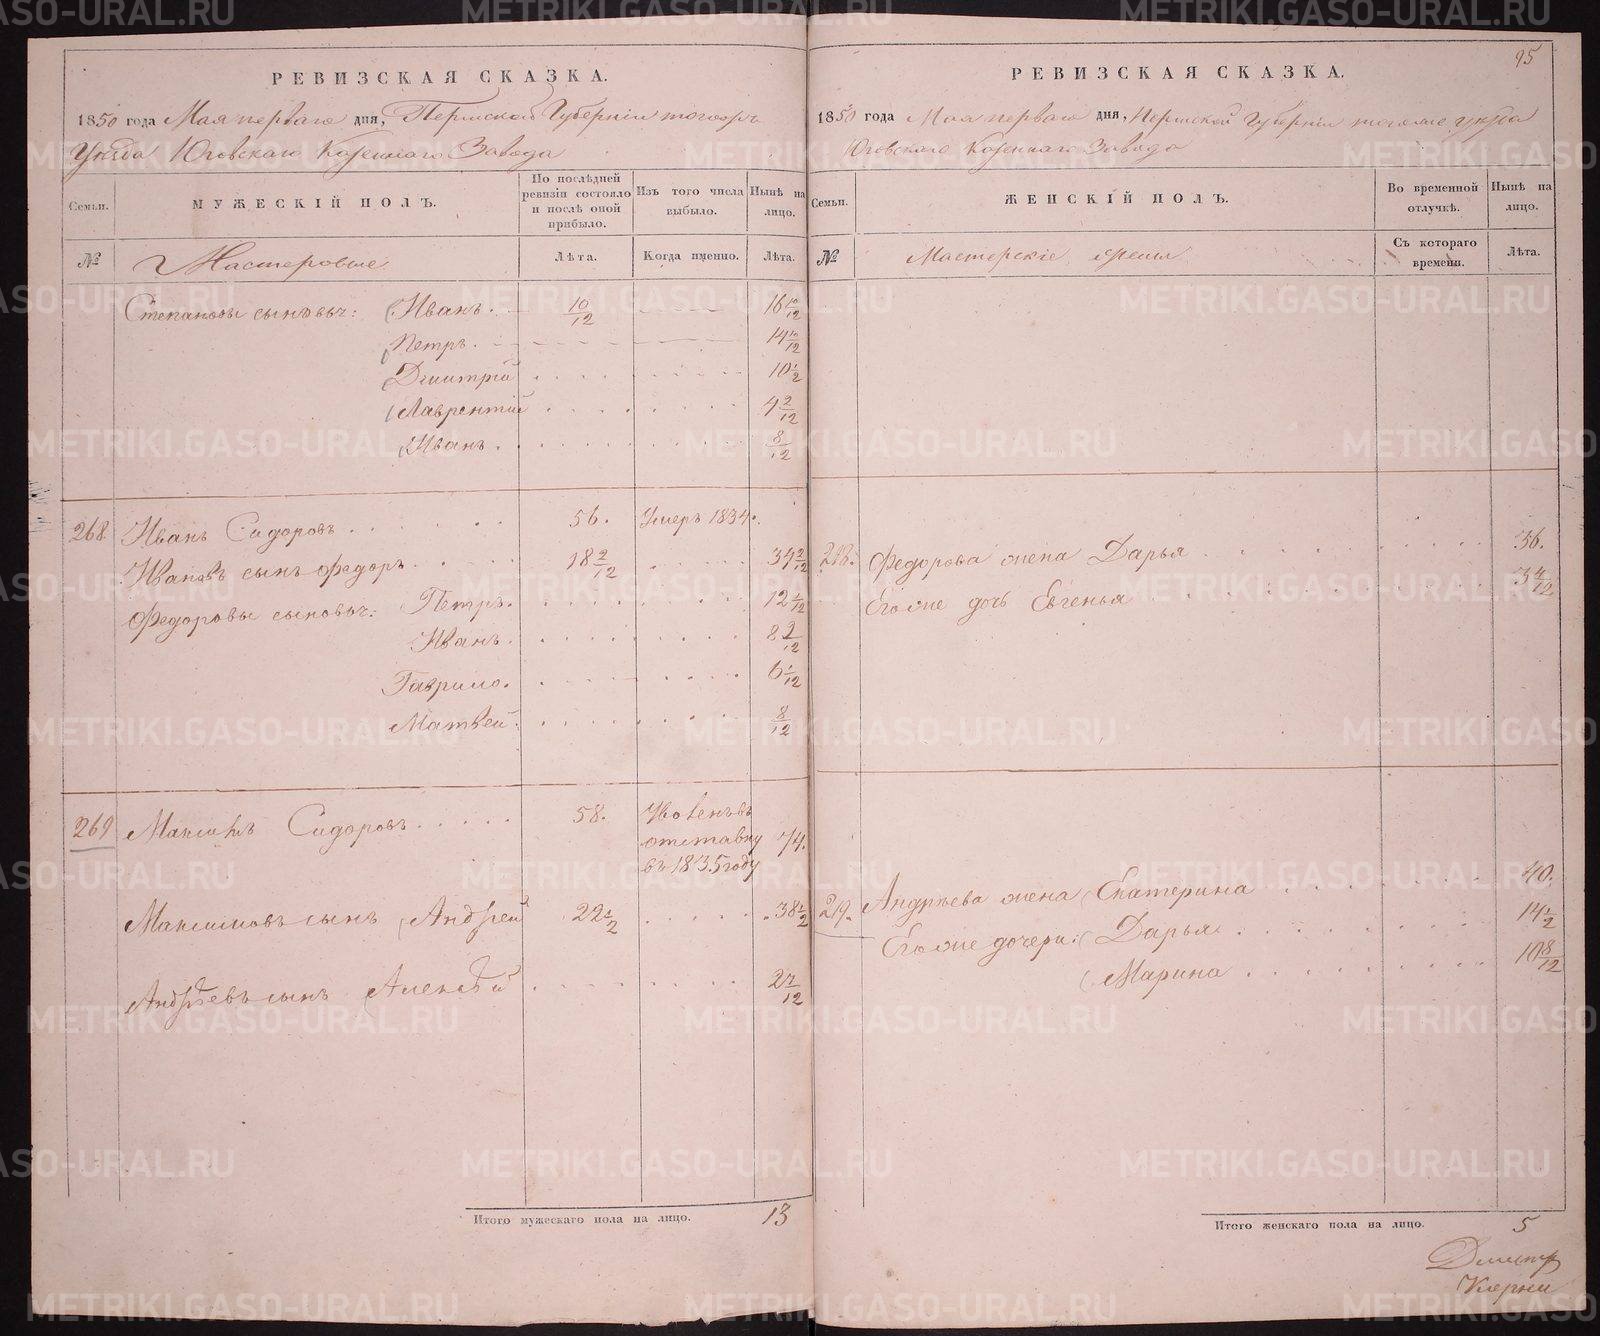 95
РЕВИЗСКАЯ СКАЗКА.
1850 года Мая перваго дня, Пермской Губернiи тогожъ
Уѣзда Юговскаго Казеннаго Завода
Семьи.
МУЖЕСКIЙ ПОЛЪ.
По послѣдней ревизiи состояло и послѣ оной прибыло.
Изъ того числа выбыло.
Нынѣ на лицо.
№
Мастеровые
Лѣта.
Когда именно.
Лѣта.
Степановы сыновья: Иванъ. 10/12 16 10/12
Петръ. 14 10/12
Дмитрiй 10 1/2
Лаврентiй 4 2/12
Иванъ. 8/12
268 Иванъ Сидоровъ 56. Умеръ 1834.
Ивановъ сынъ Федоръ 18 2/12 34 2/12
Федоровы сыновья: Петръ. 12 1/12
Иванъ. 8 9/12
Гаврило. 6 1/12
Матвей. 8/12
269 Максимъ Сидоровъ 58. Уволенъ въ отставку въ 1835 году 74.
Максимовъ сынъ Андрей 22 1/2 38 1/2
Андрѣевъ сынъ Алексѣй 2 7/12
Итого мужескаго пола на лицо. 13
РЕВИЗСКАЯ СКАЗКА.
1850 года Мая перваго дня, Пермской Губернiи тогоже уѣзда
Юговскаго Казеннаго Завода
Семьи.
ЖЕНСКIЙ ПОЛЪ.
Во временной отлучкѣ.
Нынѣ на лицо.
№
Мастерскiе
Съ котораго времени.
Лѣта.
Федорова жена Дарья 36.
Егоже дочь Евгенья 3 4/12
219. Андрѣева жена Екатерина 40.
Егоже дочери: Дарья 14 1/2
Марина 10 8/12
Итого женскаго пола на лицо. 5